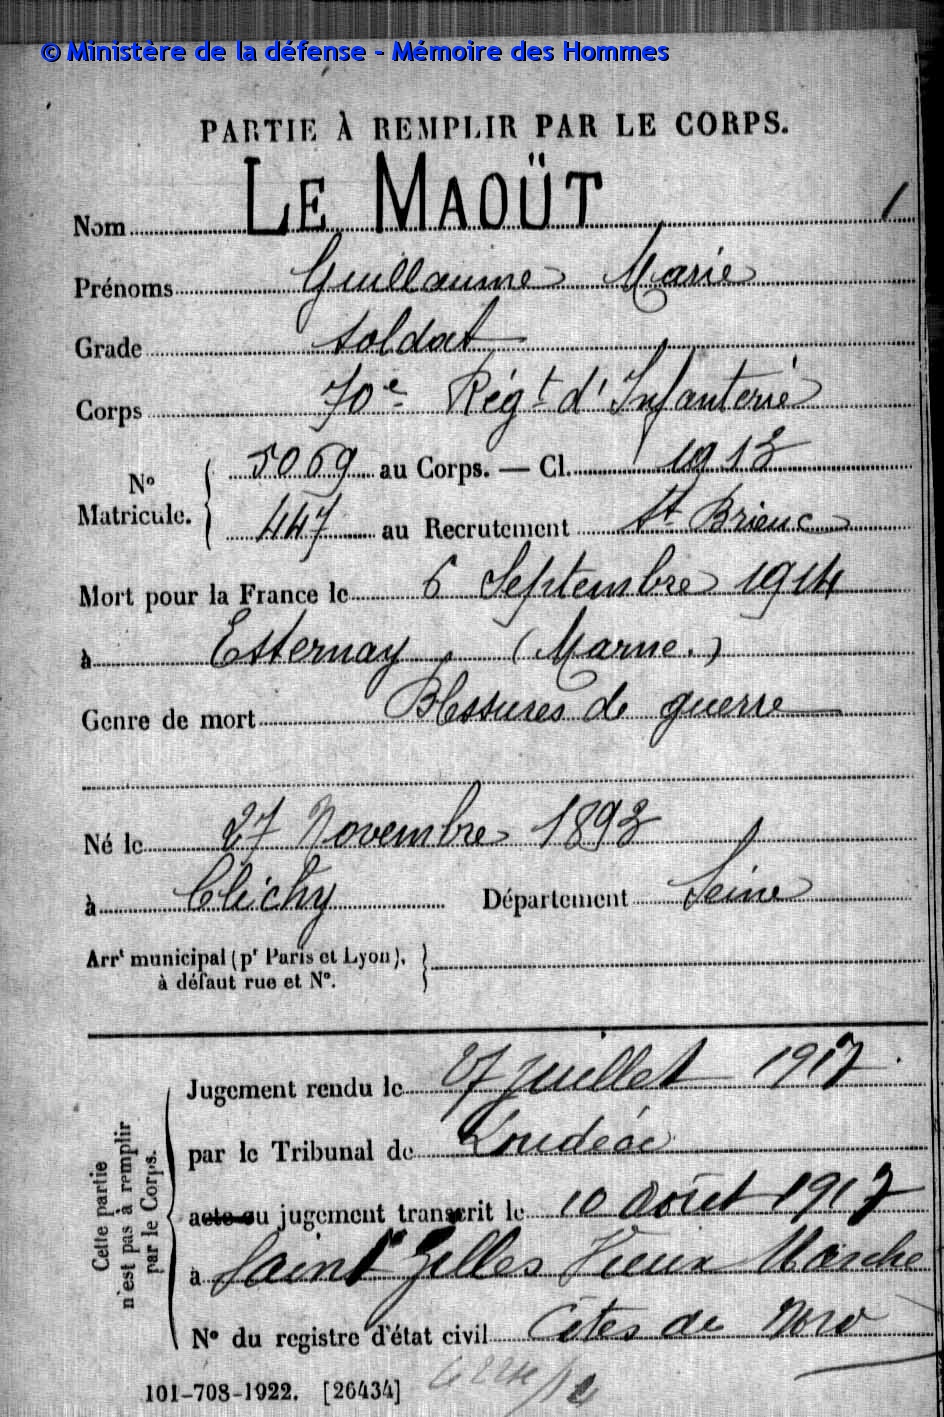 © Ministère de la défense - Mémoire des Hommes
PARTIE À REMPLIR PAR LE CORPS.
Nom LE MAOÜT 1
Prénoms Guillaume Marie
Grade soldat
Corps 70e Régt d'Infanterie
No Matricule. { 5069 au Corps. — Cl. 1913
447 au Recrutement St Brieuc
Mort pour la France le 6 Septembre 1914
à Esternay (Marne.)
Genre de mort Blessures de guerre
Né le 27 Novembre 1893
à Clichy Département Seine
Arrt municipal (pr Paris et Lyon),
à défaut rue et No.
Cette partie n'est pas à remplir par le Corps.
Jugement rendu le 27 juillet 1917
par le Tribunal de Loudéac
acte ou jugement transcrit le 10 août 1917
à Saint Gilles Vieux Marche
No du registre d'état civil Côtes du Nord
101-708-1922. [26434]